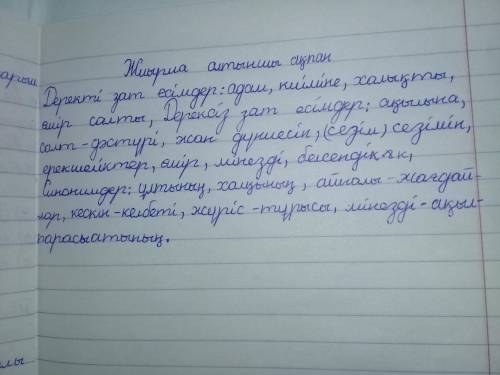 Жиырма алтыншы ақпан
Деректі зат есімдер: адам, киіміне, халықты,
өмір салты, Дерексіз зат есімдер: ақылына,
салт-дәстүрі, жан дүниесін, (сезім) сезімін,
ерекшеліктер, өмір, мінезді, белсенділік,
Синонимдер: ұлтының, халқының, айналы-жағдай-
лар, кескін-келбеті, жүріс-тұрысы, мінезді-ақыл-
парасатының.
лы